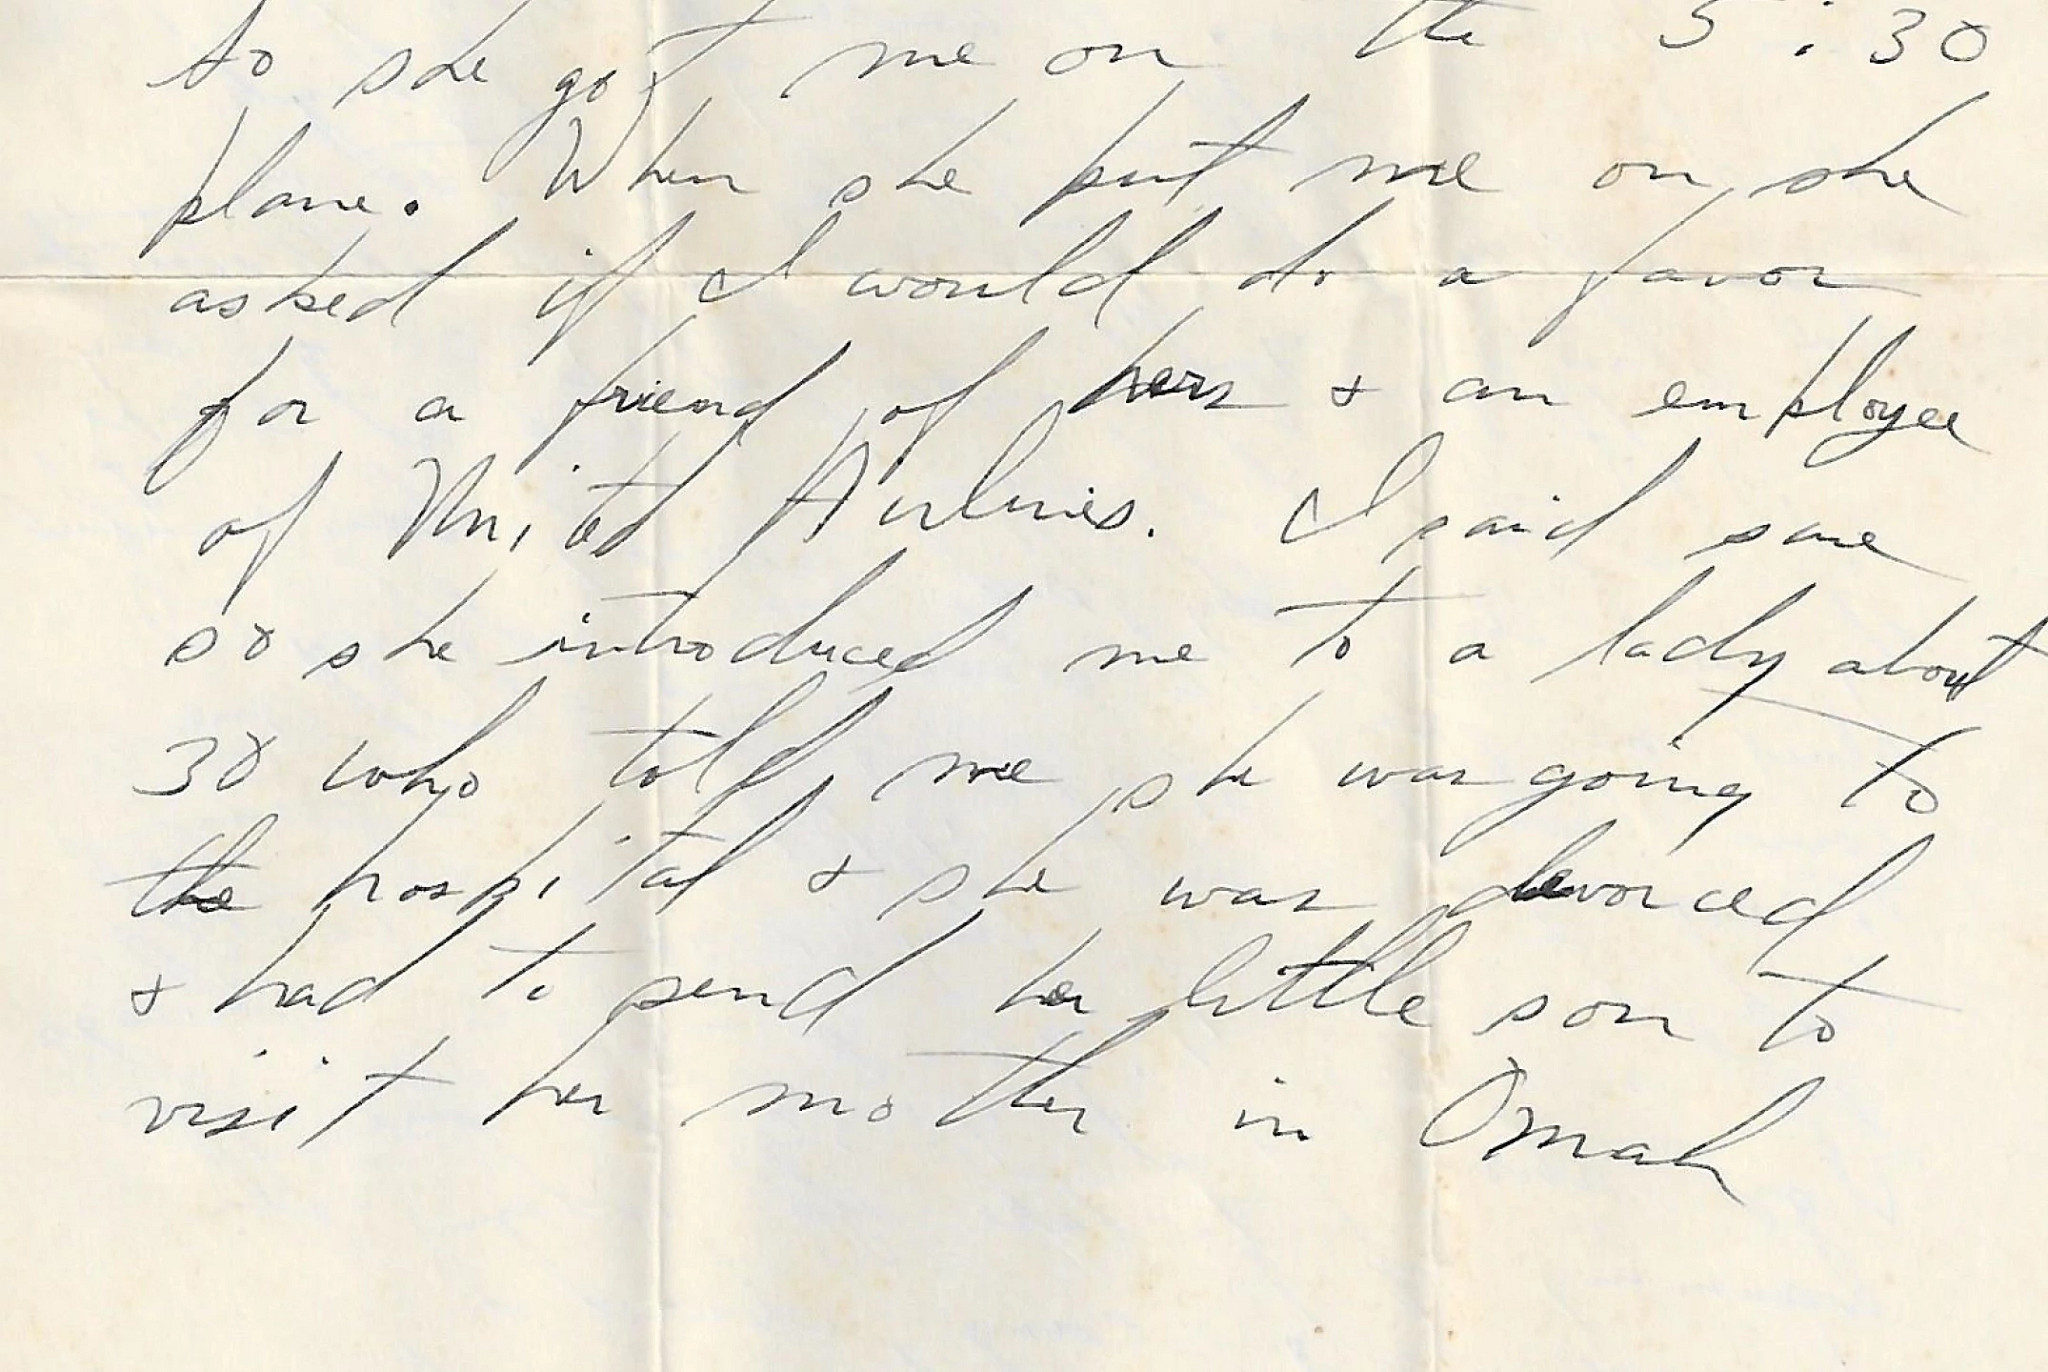 so she got me on the 5:30
plane. When she put me on, she
asked if I would do a favor
for a friend of hers & an employee
of United Airlines. I said sure
so she introduced me to a lady about
30 who told me she was going to
the hospital & she was devorced
& had to send her little son to
visit her mother in Omah